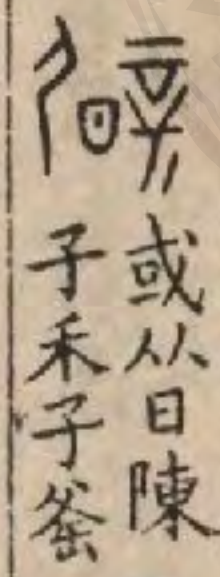 或从日陳
子禾子釜